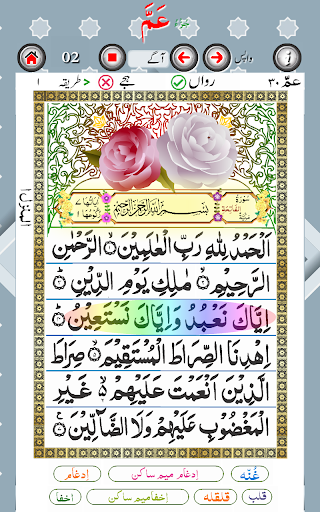 عَمَّ
02
آگے
واپس
عَمَّ ٣٠
رواں
ہجے
طریقہ
١
سُورَةُ الْفَاتِحَةِ
بِسْمِ اللّٰهِ الرَّحْمٰنِ الرَّحِيْمِ
اَلْحَمْدُ لِلّٰهِ رَبِّ الْعٰلَمِيْنَ ۙ﴿۱﴾ الرَّحْمٰنِ
الرَّحِيْمِ ۙ﴿۲﴾ مٰلِكِ يَوْمِ الدِّيْنِ ؕ﴿۳﴾
اِيَّاكَ نَعْبُدُ وَاِيَّاكَ نَسْتَعِيْنُ ؕ﴿۴﴾
اِهْدِنَا الصِّرَاطَ الْمُسْتَقِيْمَ ۙ﴿۵﴾ صِرَاطَ
الَّذِيْنَ اَنْعَمْتَ عَلَيْهِمْ ۙ۬﴿۶﴾ غَيْرِ
الْمَغْضُوْبِ عَلَيْهِمْ وَلَا الضَّآلِّيْنَ ﴿۷﴾
غُنَّه
إدغام میم ساکن
إدغام
قلب
قلقله
إخفا میم ساکن
اخفا